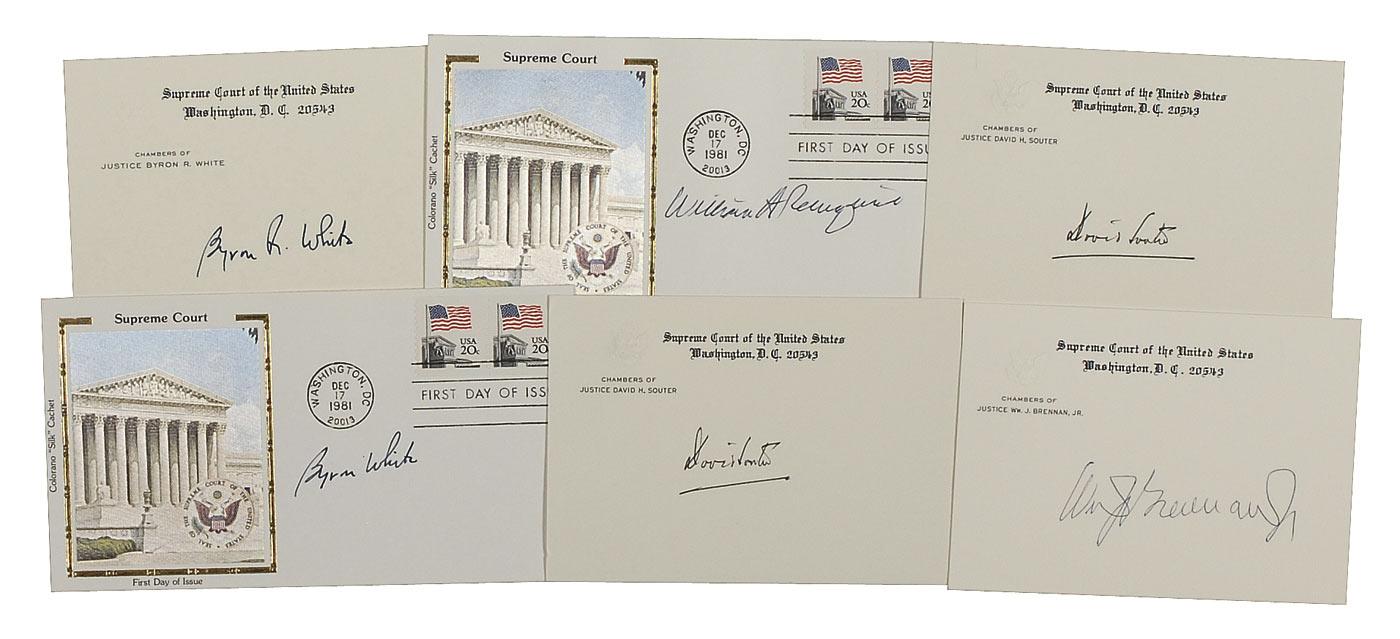 Supreme Court of the United States
Washington, D. C. 20543
CHAMBERS OF
JUSTICE BYRON R. WHITE
Byron R. White
Supreme Court
Colorano "Silk" Cachet
SEAL OF THE SUPREME COURT OF THE UNITED STATES
WASHINGTON, DC
DEC
17
1981
20013
USA
20c
U
2
FIRST DAY OF ISSU
William H Rehnquist
Supreme Court of the United States
Washington, D. C. 20543
CHAMBERS OF
JUSTICE DAVID H. SOUTER
David Souter
Supreme Court
Colorano "Silk" Cachet
SEAL OF THE SUPREME COURT OF THE UNITED STATES
First Day of Issue
WASHINGTON, DC
DEC
17
1981
20013
USA
20c
USA
20
FIRST DAY OF ISS
Byron White
Supreme Court of the United States
Washington, D. C. 20543
CHAMBERS OF
JUSTICE DAVID H. SOUTER
David Souter
Supreme Court of the United States
Washington, D. C. 20543
CHAMBERS OF
JUSTICE WM. J. BRENNAN, JR.
Wm J Brennan Jr